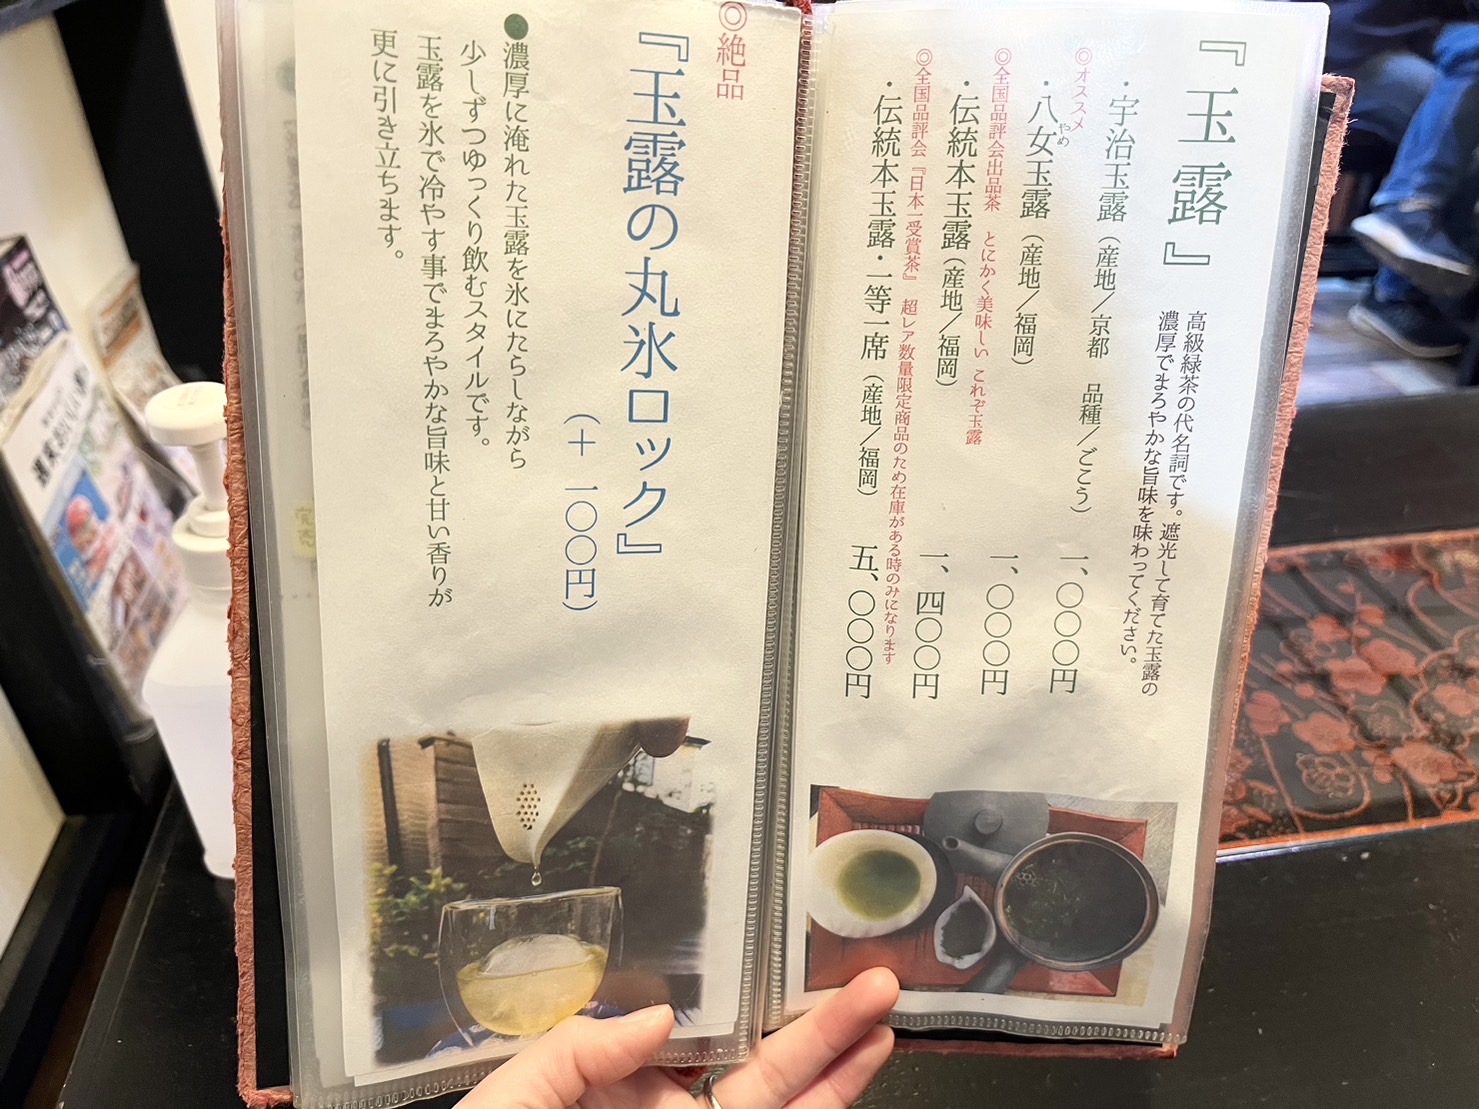 『玉露』
高級緑茶の代名詞です。遮光して育てた玉露の
濃厚でまろやかな旨味を味わってください。
・宇治玉露（産地／京都　品種／ごこう）　一、〇〇〇円
◎オススメ
・八女玉露（産地／福岡）　一、〇〇〇円
やめ
◎全国品評会出品茶　とにかく美味しい これぞ玉露
・伝統本玉露（産地／福岡）　一、四〇〇円
◎全国品評会『日本一受賞茶』　超レア数量限定商品のため在庫がある時のみになります
・伝統本玉露・一等一席（産地／福岡）　五、〇〇〇円
◎絶品
『玉露の丸氷ロック』
（＋ 一〇〇円）
●濃厚に淹れた玉露を氷にたらしながら
少しずつゆっくり飲むスタイルです。
玉露を氷で冷やす事でまろやかな旨味と甘い香りが
更に引き立ちます。